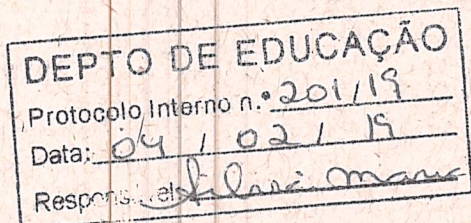 DEPTO DE EDUCAÇÃO
Protocolo Interno n.º 201/19
Data: 04 / 02 / 19
Responsável Silvia Mara